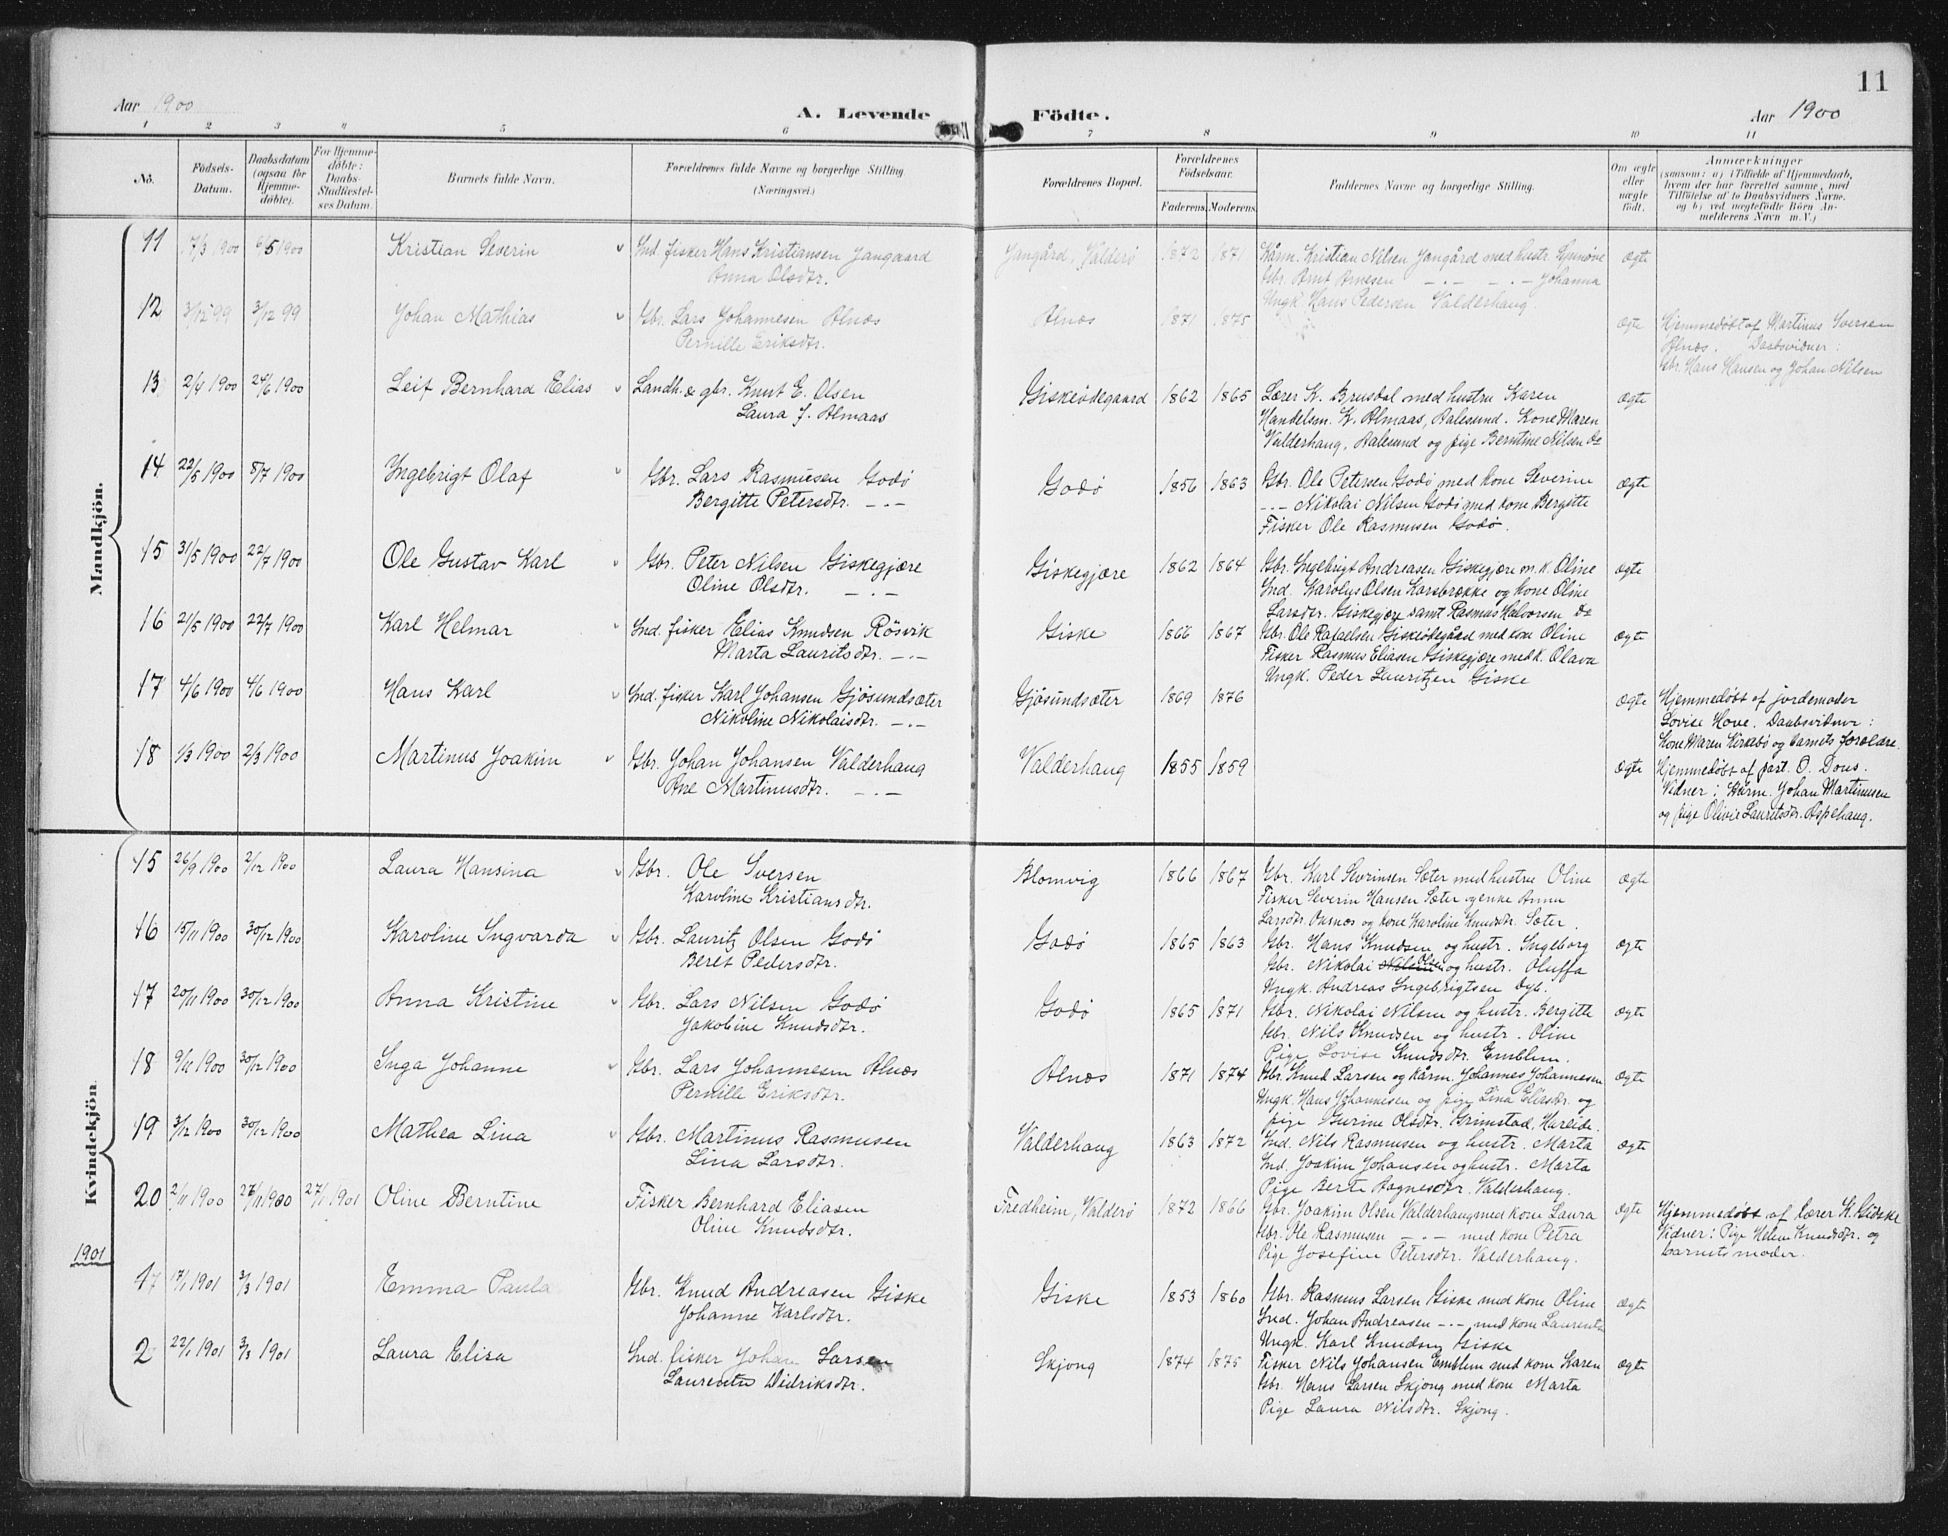 Aar 1900 A. Levende Födte. Aar 1900 11
1 2 3 4 5 6 7 8 9 10 11
No. Födsels-Datum. Daabsdatum (ogsaa for Hjemmedöbte). For Hjemmedöbte: Daabs-Stadfæstelses Datum. Barnets fulde Navn. Forældrenes fulde Navne og borgerlige Stilling (Næringsvei.) Forældrenes Bopæl. Forældrenes Födselsaar. Faderens. Moderens. Faddernes Navne og borgerlige Stilling. Om ægte eller uægte födt. Anmærkninger (saasom: a) i Tilfælde af Hjemmedaab, hvem der har forrettet samme, med Tilföielse af to Daabsvidners Navne, og b) ved uægtefödte Börn Anmelderens Navn m. V.)
Mandkjön.
11 17/3 1900 6/5 1900 Kristian Severin Ind. fisker Hans Kristiansen Jangaard Jangård, Valderö 1872 1871 Kårm. Kristian Nilsen Jangård med hustr. Synnöve ægte
Anna Olsdtr. Gbr. Arnt Arnesen -.- -.- Johanna
Ungk. Hans Pedersen Valderhaug
12 3/12 99 3/12 99 Johan Mathias Gbr. Lars Johannesen Alnæs Alnæs 1871 1875 ægte Hjemmedøbt af Martinus Iversen
Pernille Eriksdtr. Alnæs. Daabsvidner:
Gbr. Hans Hansen og Johan Nilsen
13 2/4 1900 24/6 1900 Leif Bernhard Elias Landh. & gbr. Knut E. Olsen Giskeödegaard 1862 1865 Lærer K. Brusdal med hustru Karen ægte
Laura J. Almaas Handelsm. K. Almaas, Aalesund. Kone Maren
Valderhaug, Aalesund og pige Berntine Nilsen do
14 22/5 1900 8/7 1900 Ingebrigt Olaf Gbr. Lars Rasmusen Godö Godö 1856 1863 Gbr. Ole Petersen Godö med kone Severine ægte
Bergitte Petersdtr. -.- -.- Nikolai Nilsen Godö med kone Bergitte
Fisker Ole Rasmusen Godö.
15 31/5 1900 22/7 1900 Ole Gustav Karl Gbr. Peter Nilsen Giskegjære Giskegjære 1862 1864 Gbr. Ingebrigt Andreasen Giskegjære m. k. Oline ægte
Oline Olsdtr. -.- Ind. Karolus Olsen Karsbrække og kone Oline
Larsdtr. Giskegjære samt Rasmus Halvorsen do
16 21/5 1900 22/7 1900 Karl Helmar Ind. fisker Elias Knudsen Rösvik Giske 1866 1867 Gbr. Ole Rafaelsen Giskeödegård med kone Oline ægte
Marta Lauritsdtr. -.- Fisker Rasmus Eliasen Giskegjære med k. Olava
Ungk. Peder Lauritzen Giske
17 4/6 1900 4/6 1900 Hans Karl Ind. fisker Karl Johansen Gjösundsæter Gjösundsæter 1869 1876 ægte Hjemmedöbt af jordemoder
Nikoline Nikolaisdtr. -.- Lovise Hove. Daabsvidner:
Kone Maren Kirkebö og barnets forældre.
18 1/3 1900 2/3 1900 Martinus Joakim Gbr. Johan Johansen Valderhaug Valderhaug 1855 1859 ægte Hjemmedöbt af part. O. Dons.
Ane Martinusdtr. -.- Vidner: Kårm. Johan Martinusen
og pige Olivie Lauritsdtr. Aspehaug.
Kvindekjön.
15 26/9 1900 2/12 1900 Laura Hansina Gbr. Ole Iversen Blomvig 1866 1867 Gbr. Karl Sevrinsen Sæter med hustru Oline ægte
Karoline Kristiansdtr. Fisker Severin Hansen Sæter enke Anna
Larsdtr. Oksnæs og kone Karoline Knudsdtr. Sæter.
16 15/11 1900 30/12 1900 Karoline Ingvarda Gbr. Lauritz Olsen Godö Godö 1865 1863 Gbr. Hans Knudsen og hustr. Ingeborg ægte
Beret Pedersdtr. Gbr. Nikolai Nilsen Olsen og hustr. Oluffa
Ungk. Andreas Ingebrigtsen Dyb.
17 20/11 1900 30/12 1900 Anna Kristine Gbr. Lars Nilsen Godö Godö 1865 1871 Gbr. Nikolai Nilsen og hustr. Bergitte ægte
Jakobine Knudsdtr. Gbr. Nils Knudsen og hustr. Oline
Pige Lovise Knudsdtr. Emblem.
18 9/11 1900 30/12 1900 Inga Johanne Gbr. Lars Johannesen Alnæs Alnæs 1871 1874 Gbr. Knud Larsen og kårm. Johannes Johannesen ægte
Pernille Eriksdtr. Ungk. Hans Johannesen og pige Lina Eliasdtr. og
pige Gurine Olsdtr. Grimstad, Hareide.
19 3/12 1900 30/12 1900 Mathea Lina Gbr. Martinus Rasmusen Valderhaug 1863 1872 Ind. Nils Rasmusen og hustr. Marta ægte
Lina Larsdtr. Ind. Joakim Johansen og hustr. Marta
Pige Berte Aagnesdtr. Valderhaug.
20 2/11 1900 27/11 1900 27/1 1901 Oline Berntine Fisker Bernhard Eliasen Fredheim, Valderö 1872 1866 Gbr. Joakim Olsen Valderhaug med kone Laura ægte Hjemmedöbt af lærer K. Gidske
Oline Knudsdtr. Gbr. Ole Rasmusen -.- med kone Petra Vidner: Pige Helene Knudsdtr. og
Pige Josefine Petersdtr. Valderhaug. barnets moder.
1901
1 17/1 1901 3/3 1901 Emma Paula Gbr. Knud Andreasen Giske Giske 1853 1860 Gbr. Rasmus Larsen Giske med kone Oline ægte
Johanne Karlsdtr. Ind. Johan Andreasen -.- med kone Laurentse
Ungk. Karl Knudsen Giske
2 22/1 1901 3/3 1901 Laura Elisa Ind. fisker Johan Larsen Skjong 1874 1875 Fisker Nils Johansen Emblem med kone Karen ægte
Laurentse Didriksdtr. Gbr. Hans Larsen Skjong med kone Marta
Pige Laura Nilsdtr. Skjong.